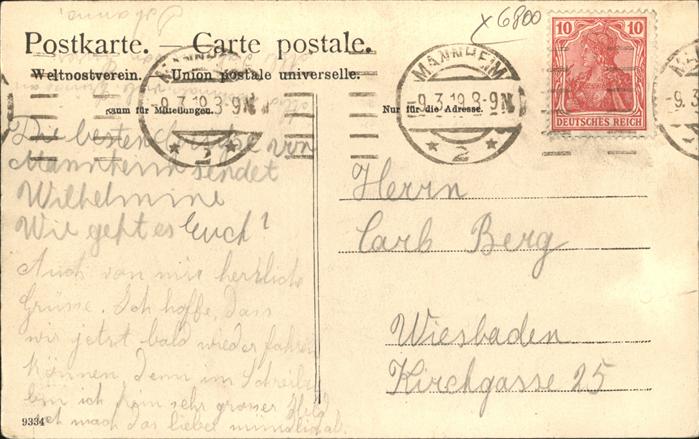 x 6800
Postkarte. — Carte postale.
Weltpostverein. — Union postale universelle.
Raum für Mitteilungen.
Nur für die Adresse.
MANNHEIM
-9.3.19.8-9N
2
MANNHEIM
-9.3.19.8-9N
2
10 10
DEUTSCHES REICH
MA
-9.3
Die besten Grüsse von
Mannheim sendet
Wilhelmine
Wie geht es Euch?
Auch von mir herzliche
Grüsse. Ich hoffe, dass
wir jetzt bald wieder fahren
können. Denn im Schreiben
bin ich kein sehr grosser Held
ich mach das lieber mündlich.
Herrn
Carl Berg
Wiesbaden
Kirchgasse 25
9334